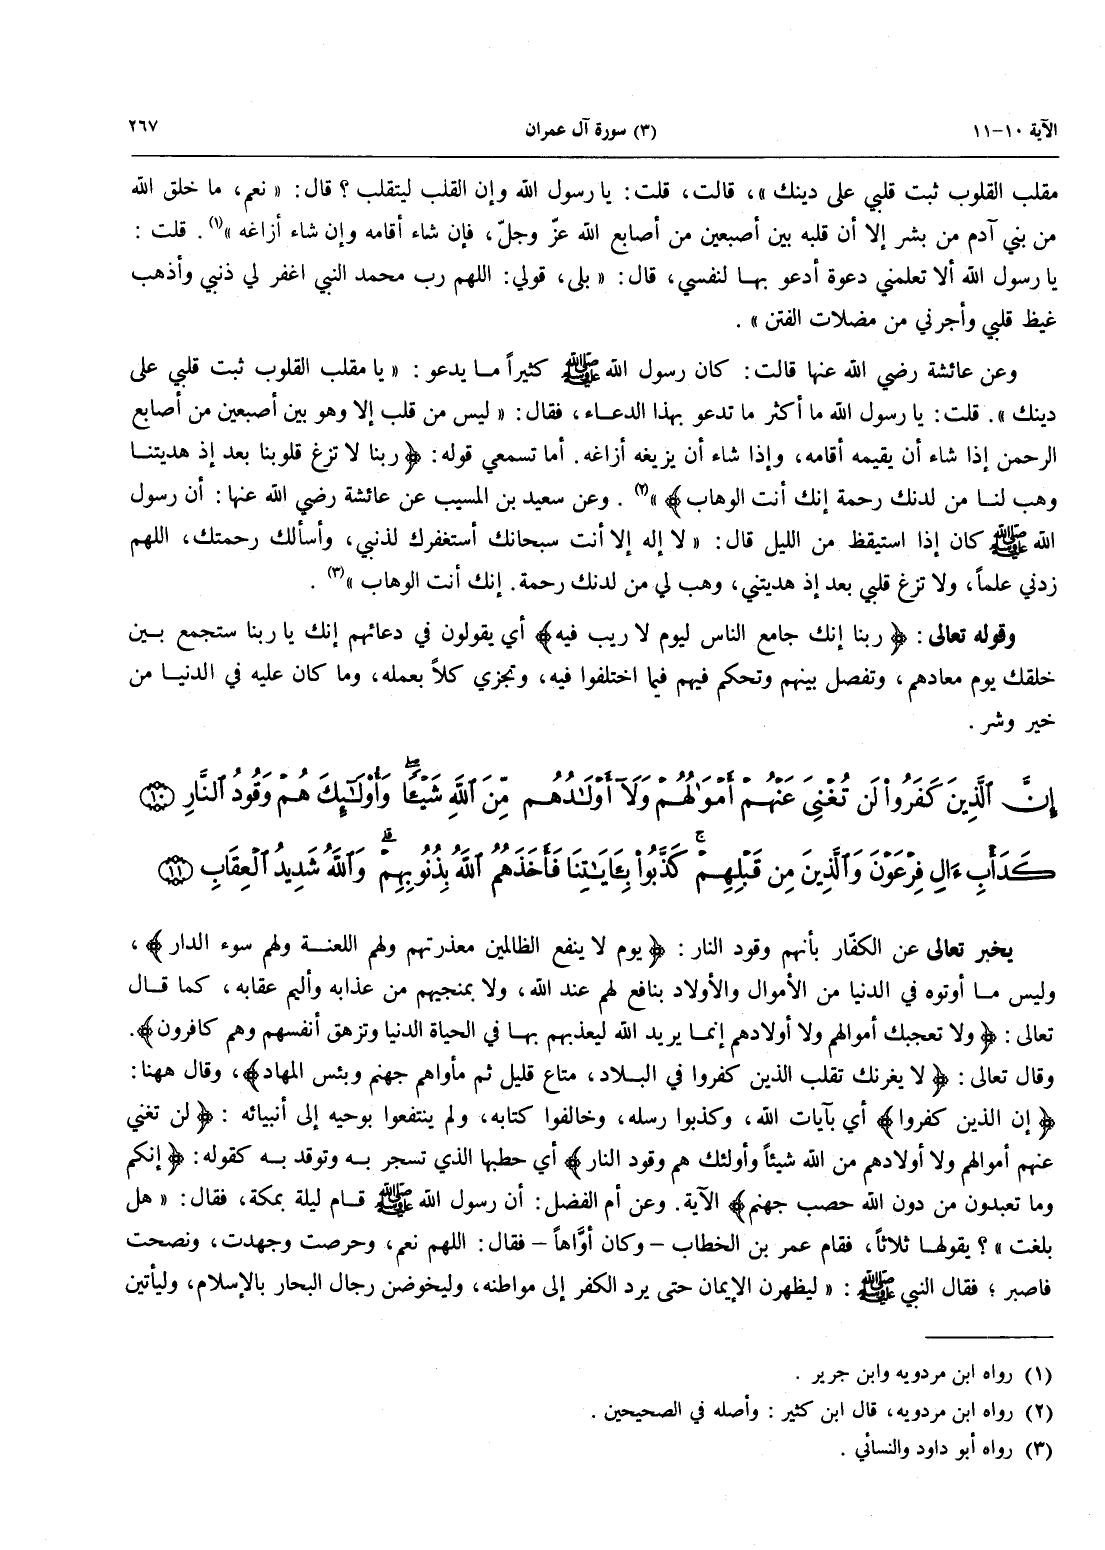 الآية ١٠-١١ (٣) سورة آل عمران ٢٦٧
مقلب القلوب ثبت قلبي على دينك »، قالت، قلت: يا رسول الله وإن القلب ليتقلب ؟ قال: « نعم، ما خلق الله
من بني آدم من بشر إلا أن قلبه بين أصبعين من أصابع الله عزّ وجلّ، فإن شاء أقامه وإن شاء أزاغه »(١). قلت :
يا رسول الله ألا تعلمني دعوة أدعو بها لنفسي، قال: « بلى، قولي: اللهم رب محمد النبي اغفر لي ذنبي وأذهب
غيظ قلبي وأجرني من مضلات الفتن » .
وعن عائشة رضي الله عنها قالت: كان رسول الله ﷺ كثيراً ما يدعو : « يا مقلب القلوب ثبت قلبي على
دينك ». قلت: يا رسول الله ما أكثر ما تدعو بهذا الدعاء، فقال: « ليس من قلب إلا وهو بين أصبعين من أصابع
الرحمن إذا شاء أن يقيمه أقامه، وإذا شاء أن يزيغه أزاغه. أما تسمعي قوله: ﴿ ربنا لا تزغ قلوبنا بعد إذ هديتنا
وهب لنا من لدنك رحمة إنك أنت الوهاب ﴾ »(٢) . وعن سعيد بن المسيب عن عائشة رضي الله عنها: أن رسول
الله ﷺ كان إذا استيقظ من الليل قال: « لا إله إلا أنت سبحانك أستغفرك لذنبي، وأسألك رحمتك، اللهم
زدني علماً، ولا تزغ قلبي بعد إذ هديتني، وهب لي من لدنك رحمة. إنك أنت الوهاب »(٣) .
وقوله تعالى : ﴿ ربنا إنك جامع الناس ليوم لا ريب فيه ﴾ أي يقولون في دعائهم إنك يا ربنا ستجمع بين
خلقك يوم معادهم، وتفصل بينهم وتحكم فيهم فيما اختلفوا فيه، وتجزي كلاً بعمله، وما كان عليه في الدنيا من
خير وشر .
إِنَّ ٱلَّذِينَ كَفَرُوا۟ لَن تُغْنِىَ عَنْهُمْ أَمْوَٰلُهُمْ وَلَآ أَوْلَٰدُهُم مِّنَ ٱللَّهِ شَيْـًٔا ۖ وَأُو۟لَٰٓئِكَ هُمْ وَقُودُ ٱلنَّارِ ١٠
كَدَأْبِ ءَالِ فِرْعَوْنَ وَٱلَّذِينَ مِن قَبْلِهِمْ ۚ كَذَّبُوا۟ بِـَٔايَٰتِنَا فَأَخَذَهُمُ ٱللَّهُ بِذُنُوبِهِمْ ۗ وَٱللَّهُ شَدِيدُ ٱلْعِقَابِ ١١
يخبر تعالى عن الكفّار بأنهم وقود النار : ﴿ يوم لا ينفع الظالمين معذرتهم ولهم اللعنة ولهم سوء الدار ﴾ ،
وليس ما أوتوه في الدنيا من الأموال والأولاد بنافع لهم عند الله، ولا بمنجيهم من عذابه وأليم عقابه، كما قال
تعالى : ﴿ ولا تعجبك أموالهم ولا أولادهم إنما يريد الله ليعذبهم بها في الحياة الدنيا وتزهق أنفسهم وهم كافرون ﴾.
وقال تعالى : ﴿ لا يغرنك تقلب الذين كفروا في البلاد، متاع قليل ثم مأواهم جهنم وبئس المهاد ﴾، وقال ههنا:
﴿ إن الذين كفروا ﴾ أي بآيات الله، وكذبوا رسله، وخالفوا كتابه، ولم ينتفعوا بوحيه إلى أنبيائه : ﴿ لن تغني
عنهم أموالهم ولا أولادهم من الله شيئاً وأولئك هم وقود النار ﴾ أي حطبها الذي تسجر به وتوقد به كقوله: ﴿ إنكم
وما تعبدون من دون الله حصب جهنم ﴾ الآية. وعن أم الفضل: أن رسول الله ﷺ قام ليلة بمكة، فقال: « هل
بلغت » ؟ يقولها ثلاثاً، فقام عمر بن الخطاب - وكان أوَّاهاً - فقال: اللهم نعم، وحرصت وجهدت، ونصحت
فاصبر ؛ فقال النبي ﷺ : « ليظهرن الإيمان حتى يرد الكفر إلى مواطنه، وليخوضن رجال البحار بالإسلام، وليأتين
(١) رواه ابن مردويه وابن جرير .
(٢) رواه ابن مردويه، قال ابن كثير : وأصله في الصحيحين .
(٣) رواه أبو داود والنسائي .